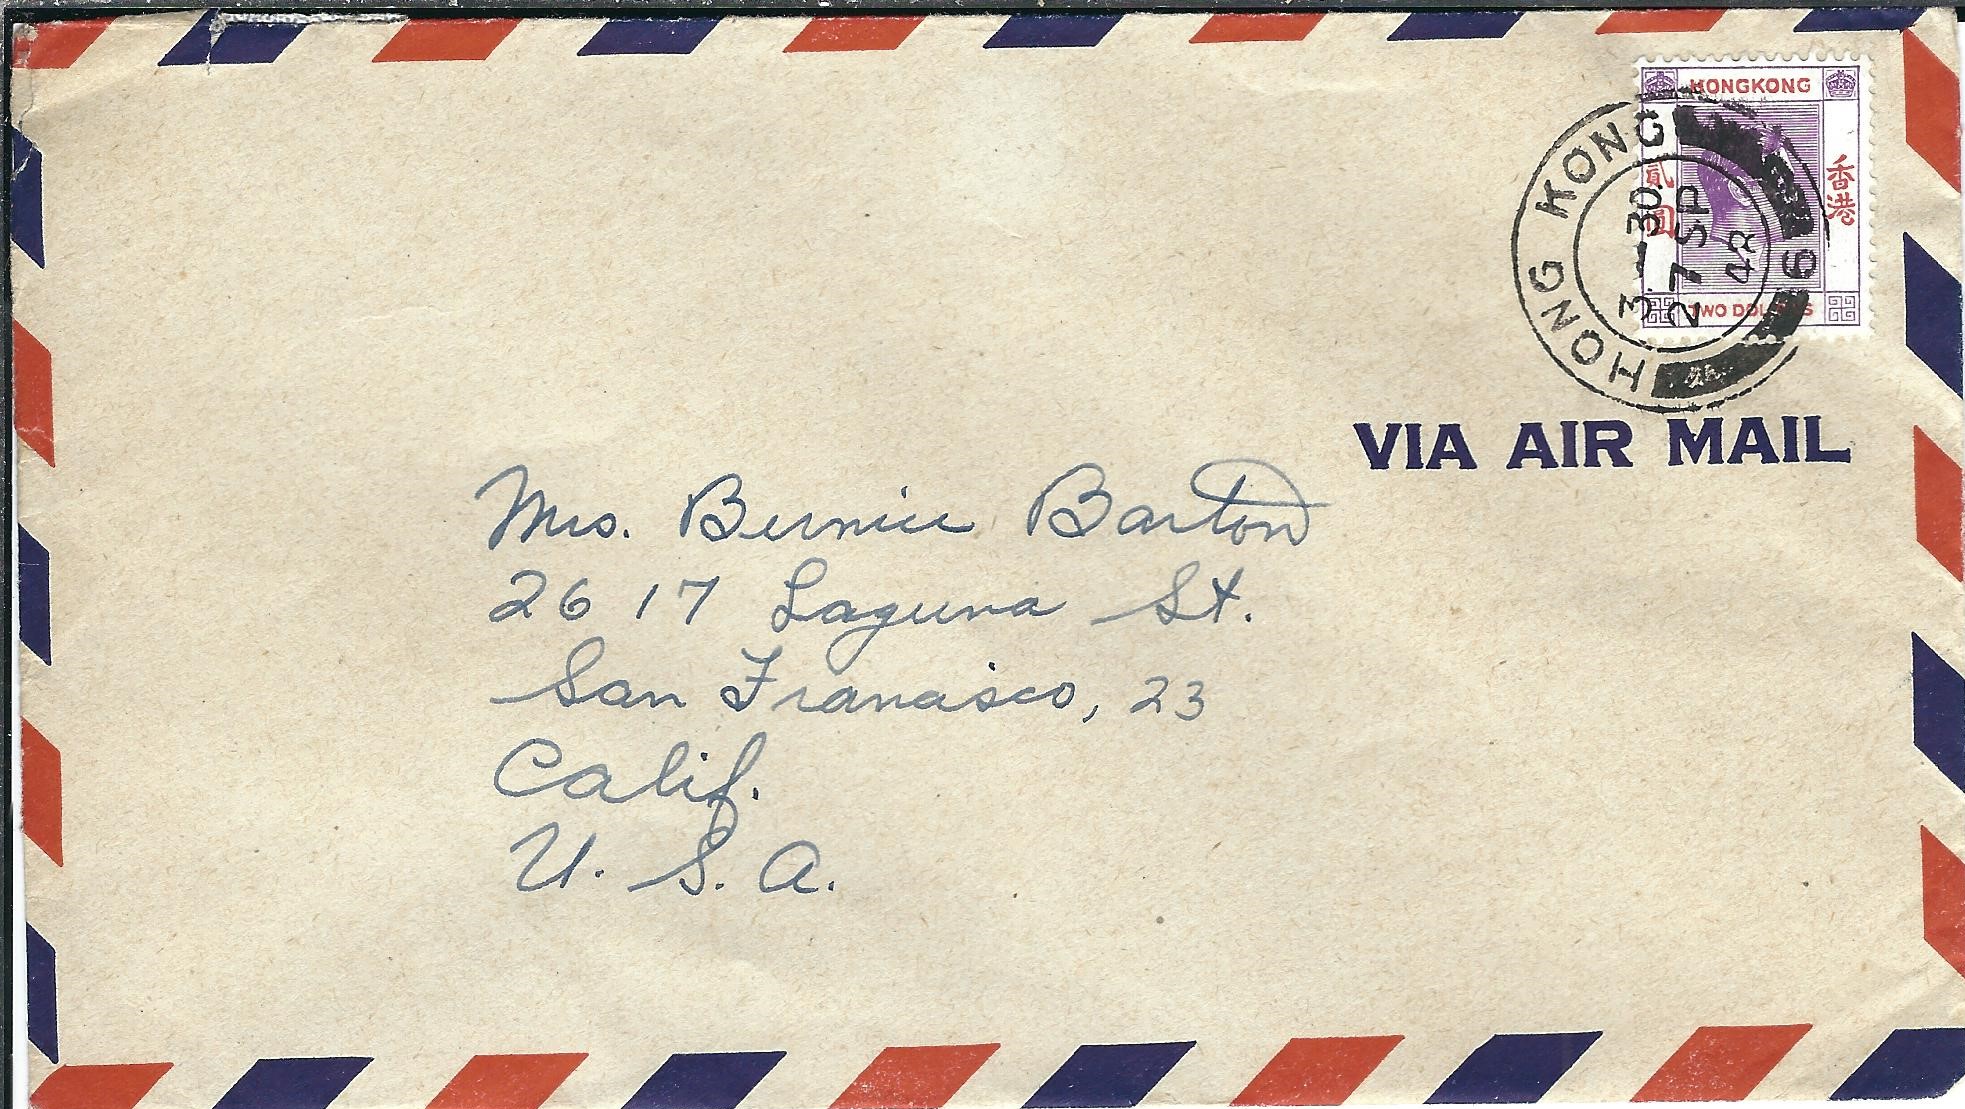 HONGKONG
香港
貳圓
TWO DOLLARS
HONG KONG
3.—30.
27 SP
48
6
VIA AIR MAIL
Mrs. Bernice Barton
2617 Laguna St.
San Francisco, 23
Calif.
U. S. A.